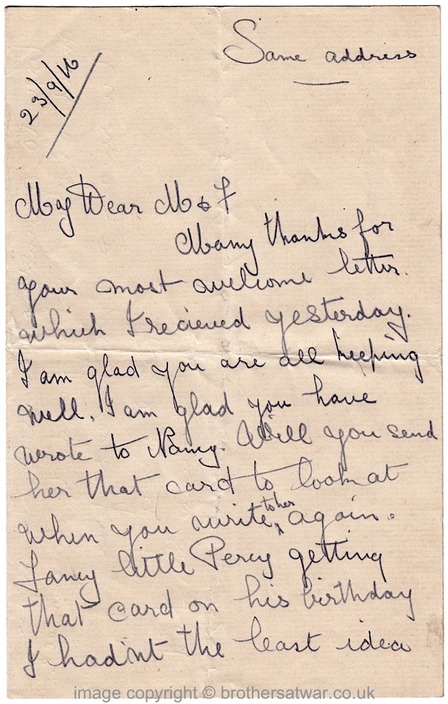 Same address
23/9/16
My Dear M & F
Many thanks for
your most welcome letter.
which I recieved yesterday.
I am glad you are all keeping
well. I am glad you have
wrote to Nancy. Will you send
her that card to look at
when you write to her again.
Fancy little Percy getting
that card on his birthday
I hadnt the least idea
image copyright © brothersatwar.co.uk